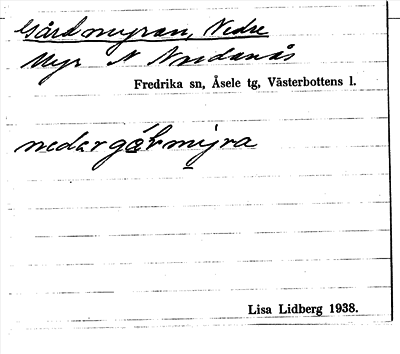 Gårdmyran, Nedre
Myr N Nordanås
Fredrika sn, Åsele tg, Västerbottens l.
nedergålmyra
Lisa Lidberg 1938.